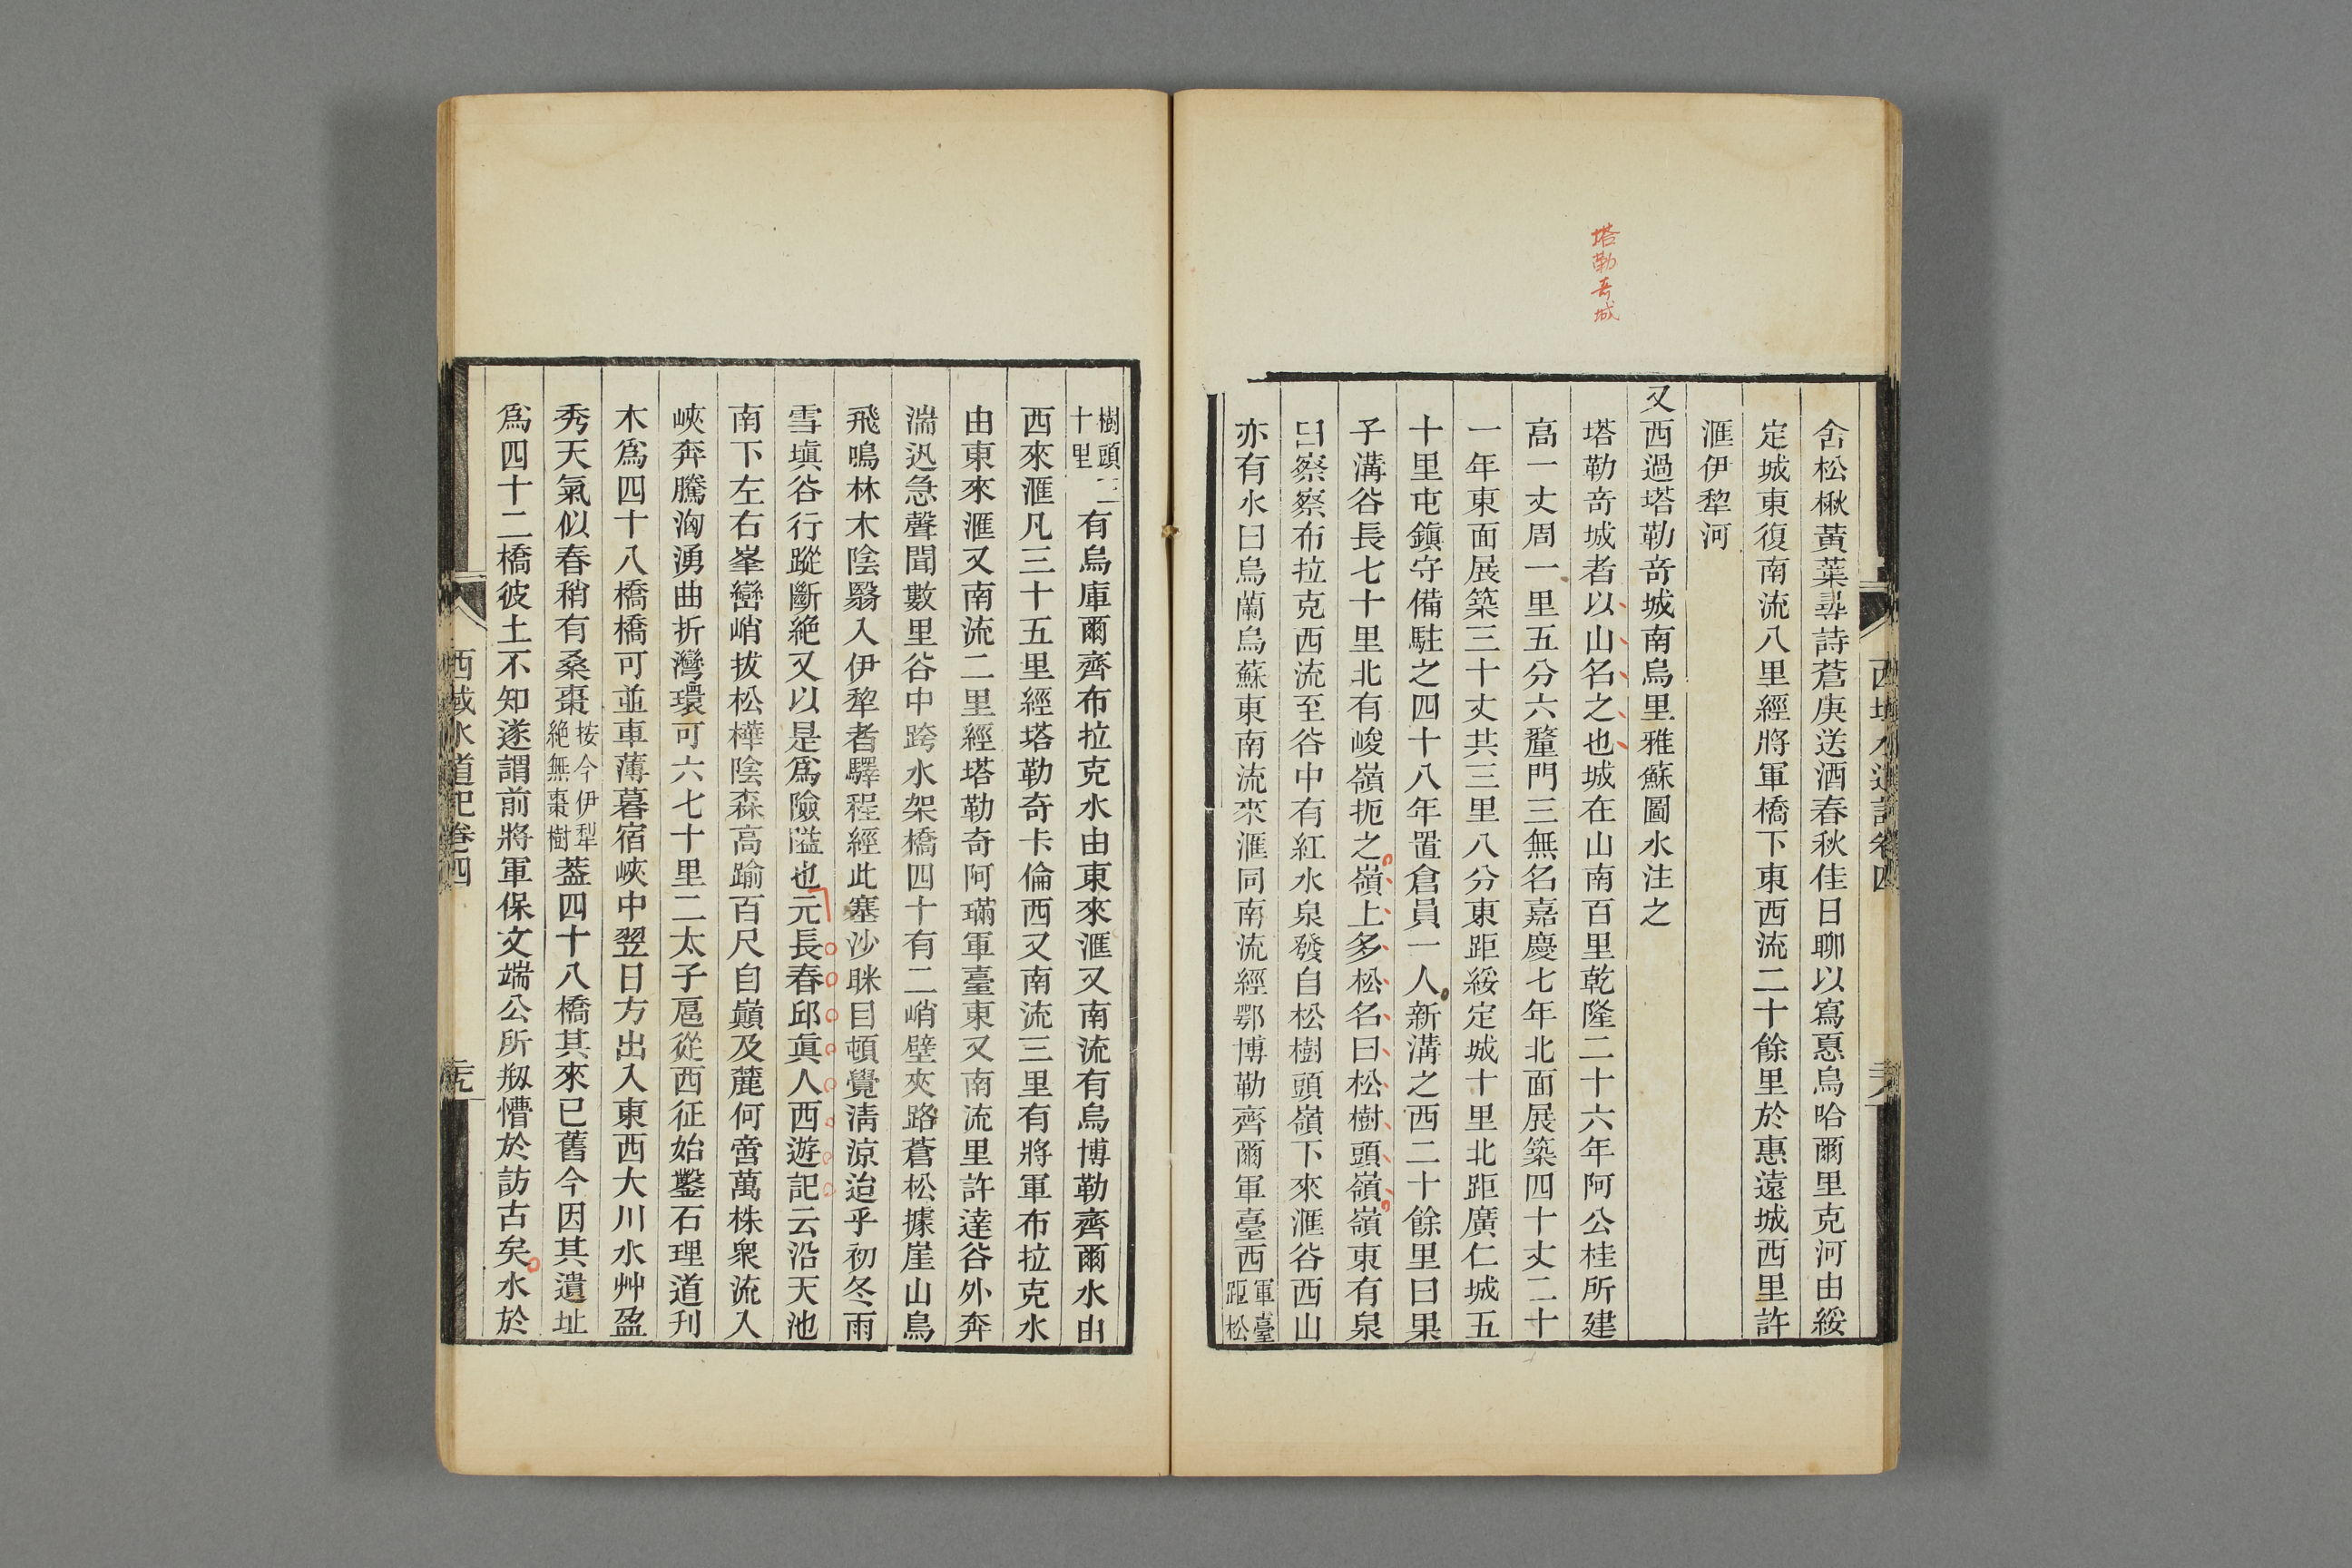 塔勒奇城
舍松楸黃葉尋詩蒼庚送酒春秋佳日聊以寫憂烏哈爾里克河由綏
定城東復南流八里經將軍橋下東西流二十餘里於惠遠城西里許
滙伊犂河
又西過塔勒奇城南烏里雅蘇圖水注之
塔勒奇城者以山名之也城在山南百里乾隆二十六年阿公桂所建
高一丈周一里五分六釐門三無名嘉慶七年北面展築四十丈二十
一年東面展築三十丈共三里八分東距綏定城十里北距廣仁城五
十里屯鎭守備駐之四十八年置倉員一人新溝之西二十餘里曰果
子溝谷長七十里北有峻嶺扼之嶺上多松名曰松樹頭嶺嶺東有泉
曰察察布拉克西流至谷中有紅水泉發自松樹頭嶺下來滙谷西山
亦有水曰烏蘭烏蘇東南流來滙同南流經鄂博勒齊爾軍臺西軍臺距松
樹頭三十里有烏庫爾齊布拉克水由東來滙又南流有烏博勒齊爾水由
西來滙凡三十五里經塔勒奇卡倫西又南流三里有將軍布拉克水
由東來滙又南流二里經塔勒奇阿璊軍臺東又南流里許達谷外奔
湍迅急聲聞數里谷中跨水架橋四十有二峭壁夾路蒼松據崖山鳥
飛鳴林木陰翳入伊犂者驛程經此塞沙眯目頓覺淸涼迨乎初冬雨
雪塡谷行蹤斷絶又以是爲險隘也元長春邱眞人西遊記云沿天池
南下左右峯巒峭拔松樺陰森高踰百尺自巔及麓何啻萬株衆流入
峽奔騰洶湧曲折灣環可六七十里二太子扈從西征始鑿石理道刊
木爲四十八橋橋可並車薄暮宿峽中翌日方出入東西大川水艸盈
秀天氣似春稍有桑棗按今伊犁絶無棗樹蓋四十八橋其來已舊今因其遺址
爲四十二橋彼土不知遂謂前將軍保文端公所剏懵於訪古矣水於
西域水道記卷四